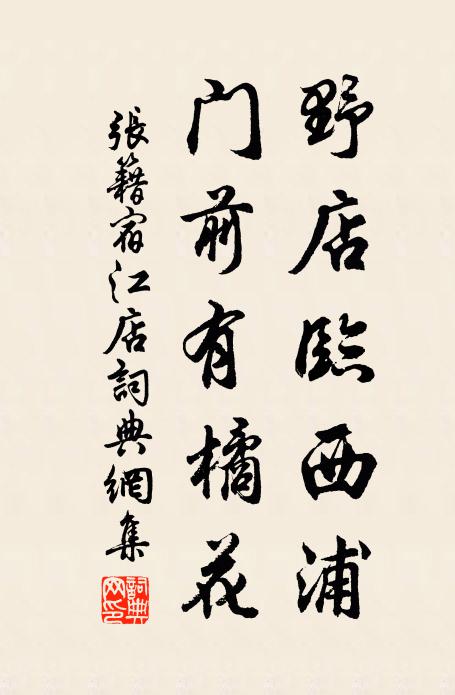 野店臨西浦
门前有橘花
張籍宿江店詞典網集
詞典
网印